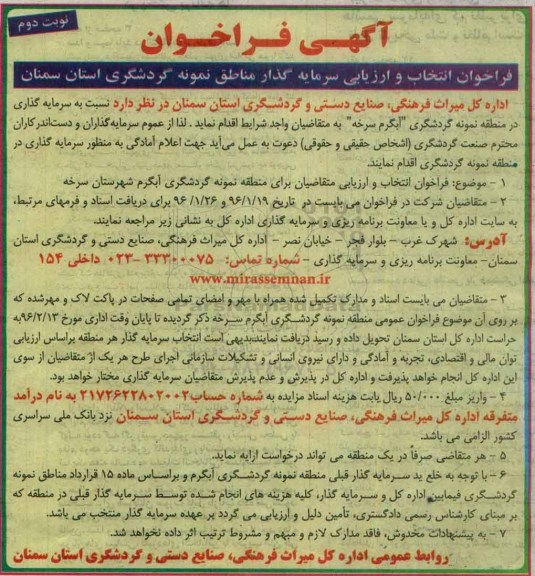 نوبت دوم
آگهی فراخوان
فراخوان انتخاب و ارزیابی سرمایه گذار مناطق نمونه گردشگری استان سمنان
اداره کل میراث فرهنگی، صنایع دستی و گردشگری استان سمنان در نظر دارد نسبت به سرمایه گذاری
در منطقه نمونه گردشگری "آبگرم سرخه" به متقاضیان واجد شرایط اقدام نماید . لذا از عموم سرمایه‌گذاران و دست‌اندرکاران
محترم صنعت گردشگری (اشخاص حقیقی و حقوقی) دعوت به عمل می‌آید جهت اعلام آمادگی به منظور سرمایه گذاری در
منطقه نمونه گردشگری اقدام نمایند.
۱ - موضوع: فراخوان انتخاب و ارزیابی متقاضیان برای منطقه نمونه گردشگری آبگرم شهرستان سرخه
۲ - متقاضیان شرکت در فراخوان می بایست در تاریخ ۹۶/۱/۱۹ و ۹۶/۱/۲۶ برای دریافت اسناد و فرمهای مرتبط،
به سایت اداره کل و یا معاونت برنامه ریزی و سرمایه گذاری اداره کل به نشانی زیر مراجعه نمایند.
آدرس: شهرک غرب - بلوار فجر - خیابان نصر - اداره کل میراث فرهنگی، صنایع دستی و گردشگری استان
سمنان- معاونت برنامه ریزی و سرمایه گذاری - شماره تماس: ۳۳۳۰۰۰۷۵-۰۲۳ داخلی ۱۵۴
www.mirassemnan.ir
۳ - متقاضیان می بایست اسناد و مدارک تکمیل شده همراه با مهر و امضای تمامی صفحات در پاکت لاک و مهرشده که
بر روی آن موضوع فراخوان عمومی منطقه نمونه گردشگری آبگرم سرخه ذکر گردیده تا پایان وقت اداری مورخ ۹۶/۲/۱۳به
حراست اداره کل استان سمنان تحویل داده و رسید دریافت نمایند.بدیهی است انتخاب سرمایه گذار هر منطقه براساس ارزیابی
توان مالی و اقتصادی، تجربه و آمادگی و دارای نیروی انسانی و تشکیلات سازمانی اجرای طرح هر یک از متقاضیان از سوی
این اداره کل انجام خواهد پذیرفت و اداره کل در پذیرش و عدم پذیرش متقاضیان سرمایه گذاری مختار خواهد بود.
۴ - واریز مبلغ ۵۰/۰۰۰ ریال بابت هزینه اسناد مزایده به شماره حساب۲۱۷۲۶۲۲۸۰۲۰۰۲ به نام درآمد
متفرقه اداره کل میراث فرهنگی، صنایع دستی و گردشگری استان سمنان نزد بانک ملی سراسری
کشور الزامی می باشد.
۵ - هر متقاضی صرفاً در یک منطقه می تواند درخواست ارایه نماید.
۶ - با توجه به خلع ید سرمایه گذار قبلی منطقه نمونه گردشگری آبگرم و براساس ماده ۱۵ قرارداد مناطق نمونه
گردشگری فیمابین اداره کل و سرمایه گذار، کلیه هزینه های انجام شده توسط سرمایه گذار قبلی در منطقه که
بر مبنای کارشناس رسمی دادگستری، تأمین دلیل و ارزیابی می گردد بر عهده سرمایه گذار منتخب می باشد.
۷ - به پیشنهادات مخدوش، فاقد مدارک لازم و مبهم و مشروط ترتیب اثر داده نخواهد شد.
روابط عمومی اداره کل میراث فرهنگی، صنایع دستی و گردشگری استان سمنان